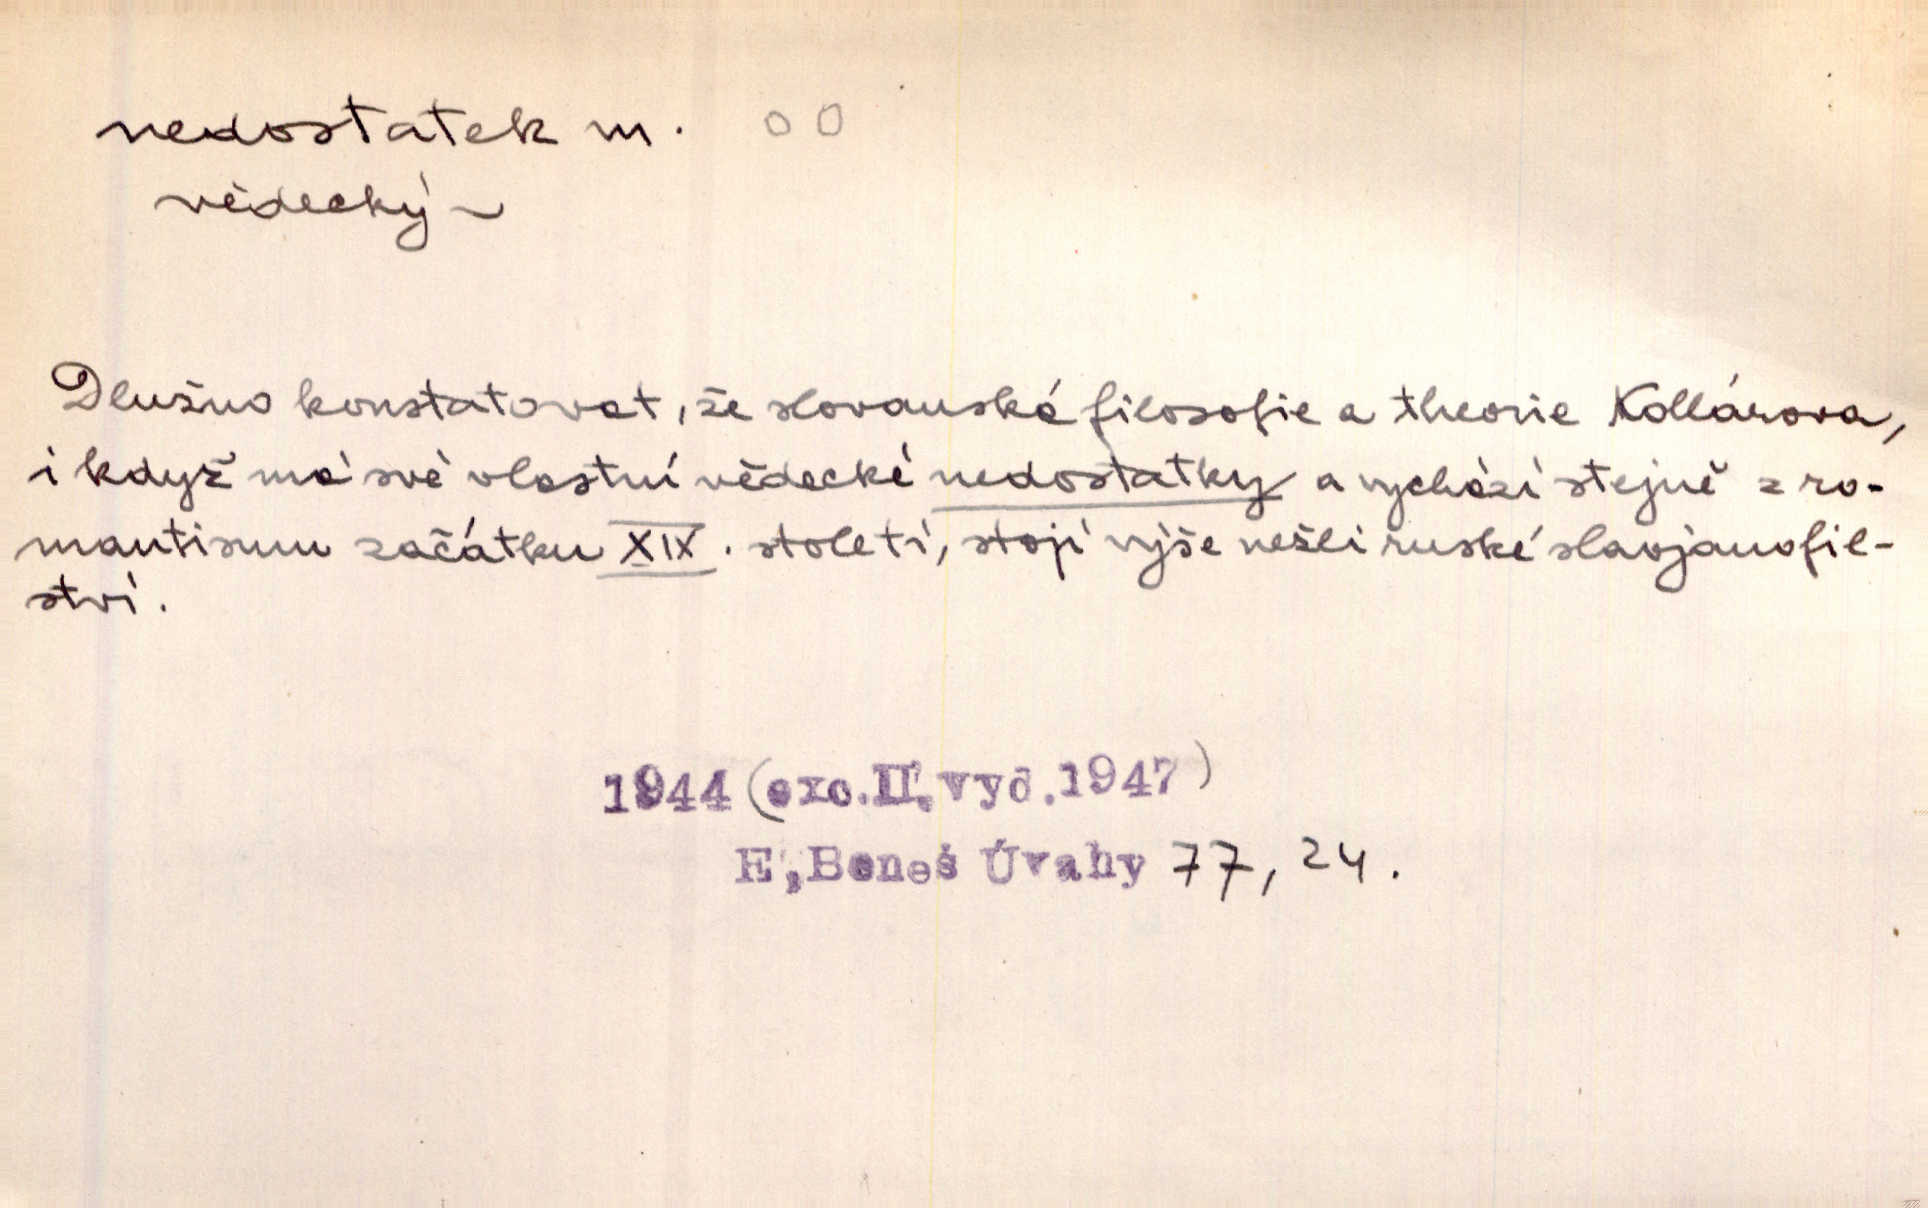 nedostatek m. oo
vědecký ~
Dlužno konstatovat, že slovanská filosofie a theorie Kollárova,
i když má své vlastní vědecké nedostatky a vychází stejně z ro-
mantismu začátku XIX. století, stojí výše nežli ruské slavjanofil-
ství.
1944 (exc. II. vyd. 1947)
E. Beneš Úvahy 77, 24.